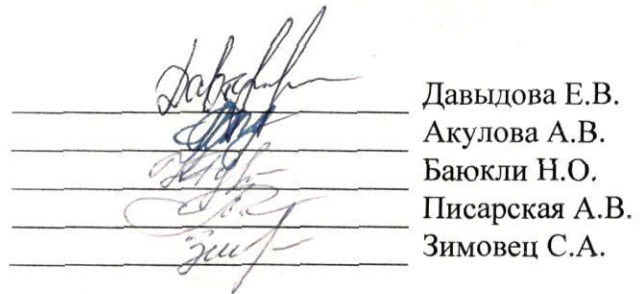 Давыдова Е.В.
Акулова А.В.
Баюкли Н.О.
Писарская А.В.
Зимовец С.А.